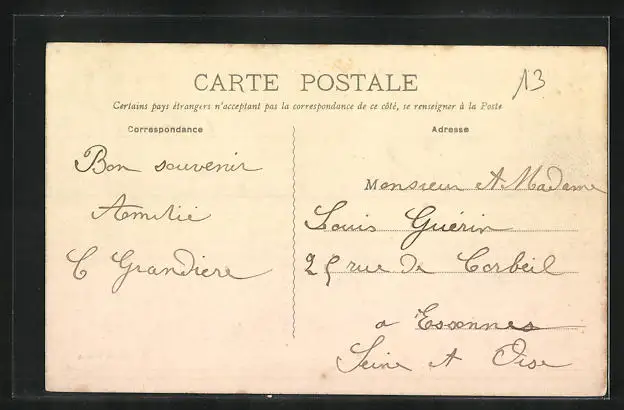 CARTE POSTALE
13
Certains pays étrangers n'acceptent pas la correspondance de ce côté, se renseigner à la Poste
Correspondance
Bon souvenir
Amitié
C Grandiere
Adresse
Monsieur et Madame
Louis Guérin
25 rue de Corbeil
a Essonnes
Seine et Oise